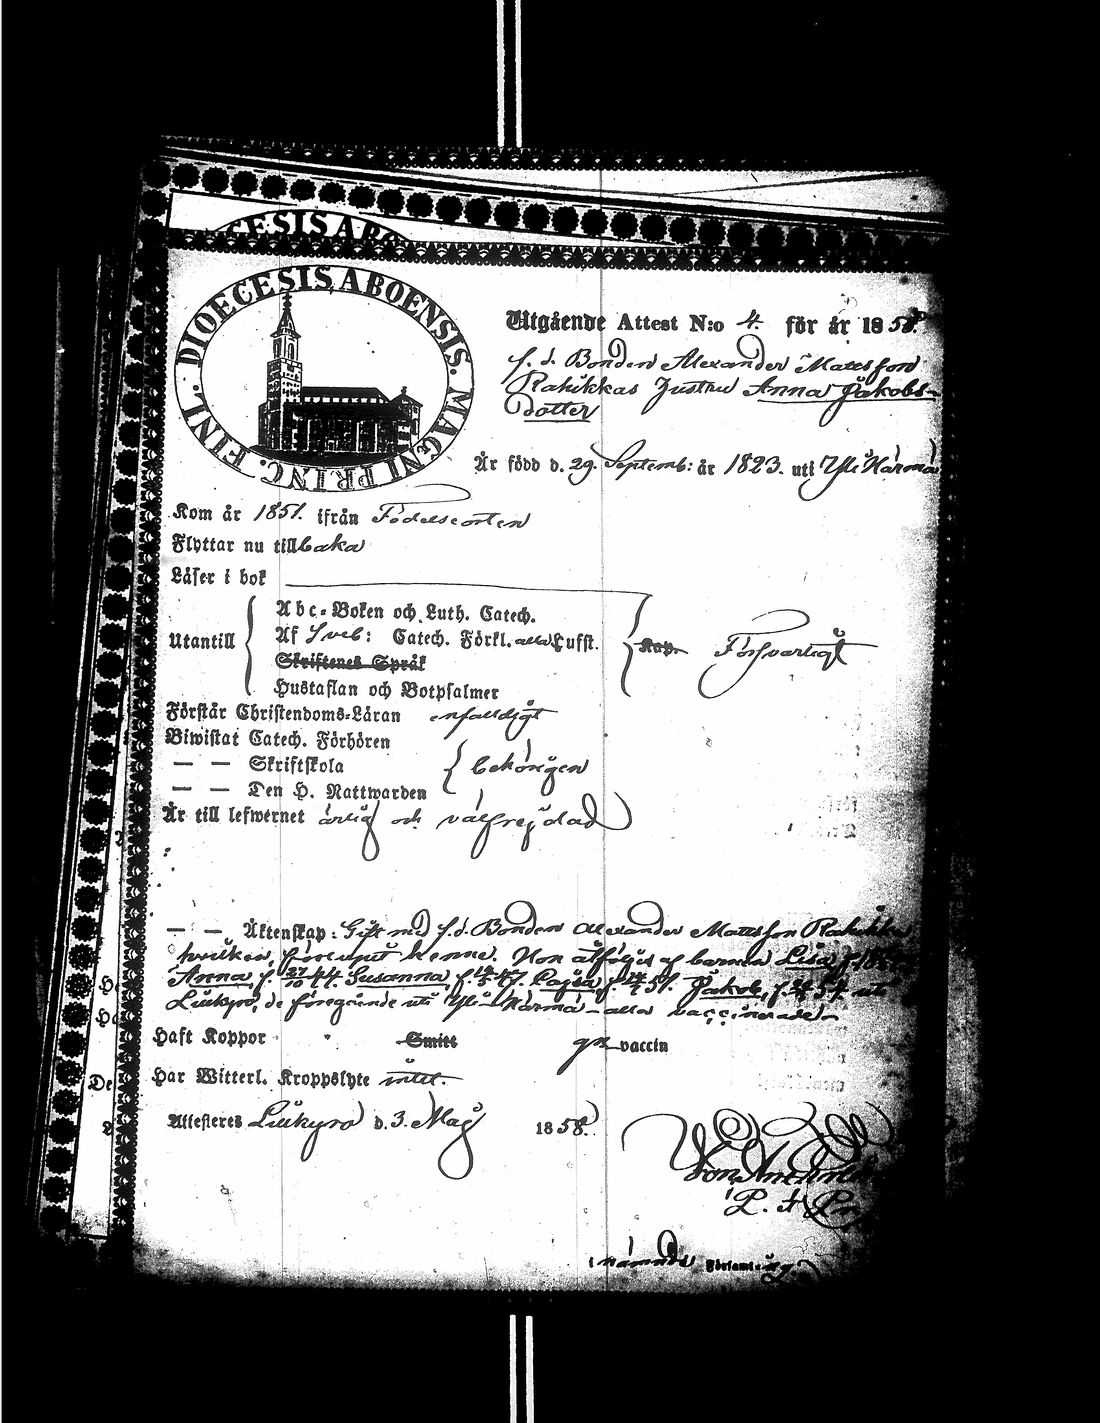 DIOECESIS ABO
DIOECESIS ABOENSIS. MAGNI PRINC. FINL.
Utgående Attest N:o 4. för år 1858.
f. d. Bonden Alexander Mattsson
Rahikkas Hustru Anna Jakobs-
dotter
Är född d. 29. Septemb: år 1823. uti Ylihärmä
Kom år 1851. ifrån Födelseorten
Flyttar nu tillbaka
Läser i bok
Utantill
Abc-Boken och Luth. Catech.
Af Sveb: Catech. Förkl. alla Lufst.
Skriftenes Språk
Hustaflan och Botpsalmer
Kap. Försvarligt
Förstår Christendoms-Läran enfaldigt
Biwistat Catech. Förhören
— — Skriftskola
— — Den H. Nattwarden
behörigen
Är till lefwernet ärlig och välfrejdad
— — Äktenskap: Gift med f.d. Bonden Alexander Mattsson Rahikka
hvilken henne. Hon åtföljes af barnen Lisa f. 18
Anna, f. 27/10 44. Susanna, f. 47. Cajsa f. 51. Jakob, f. 54 uti
Lillkyro, de föregående uti Yli-Härmä – alla vaccinerade.
Haft Koppor Smitt gn vaccin
Har Witterl. Kroppslyte intet.
Attesteres Lillkyro d. 3. Maj 1858.
P.
nämnde Församling.